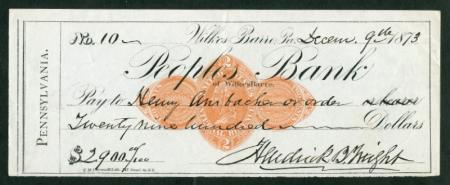 PENNSYLVANIA.
No. 10 Wilkes Barre, Pa. Decem. 9th 1873
Peoples Bank
of Wilkes Barre.
Pay to Henry Ansbacher or order
Twenty nine hundred Dollars
$2900 00/100 Hendrick B. Wright